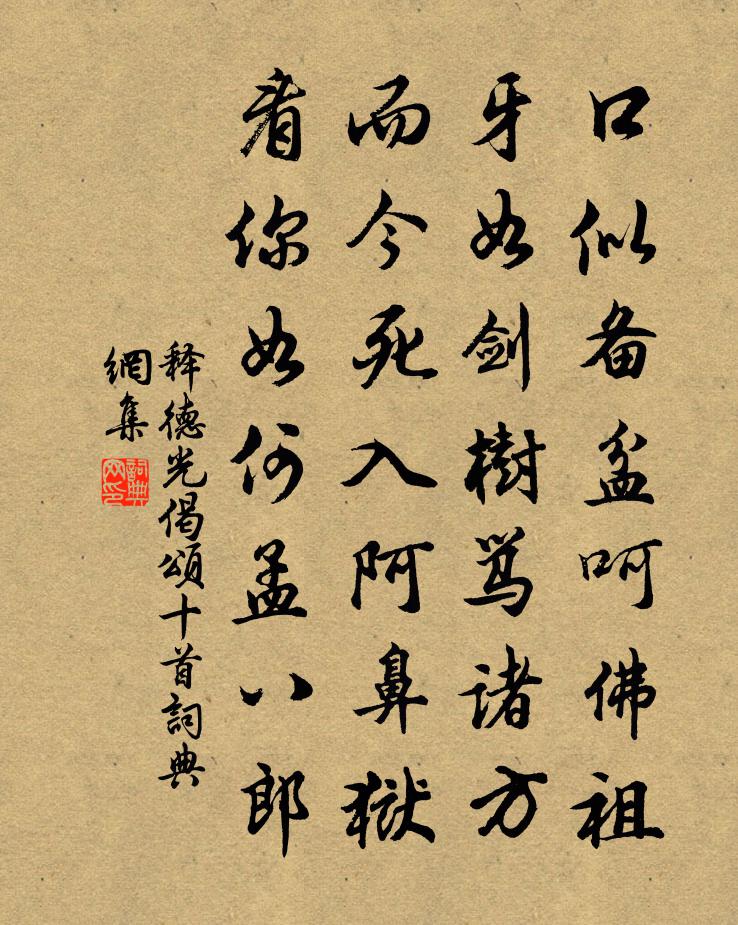 口似备盆呵佛祖
牙如剑樹骂诸方
而今死入阿鼻獄
看你如何孟八郎
释德光偈頌十首詞典
網集
詞典
网印